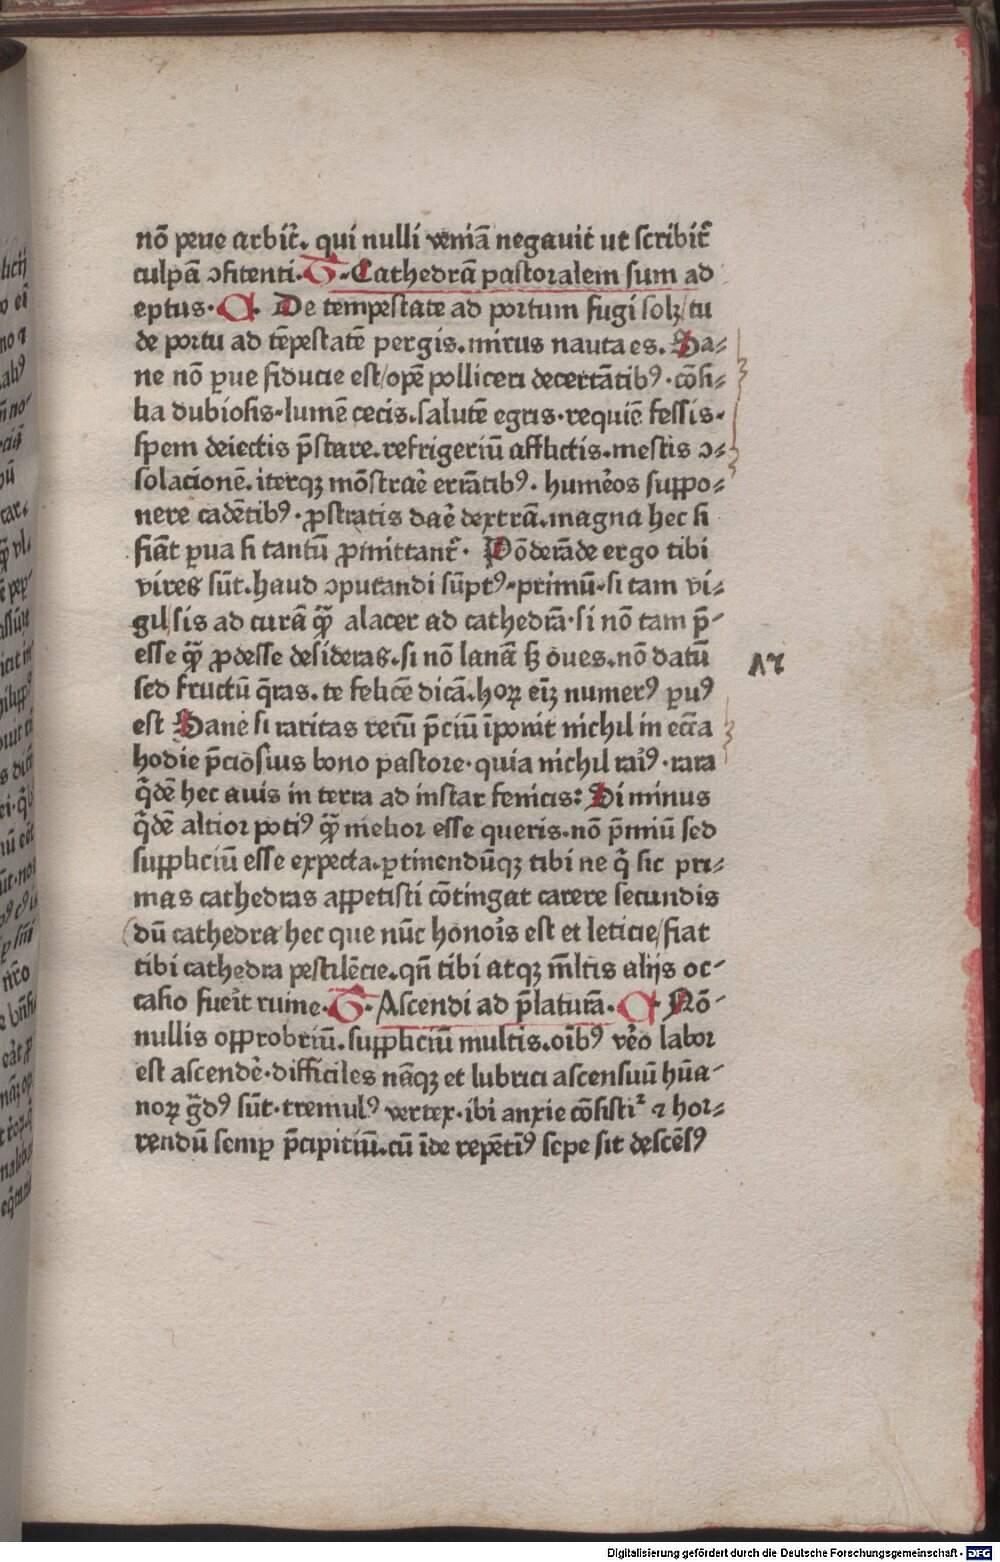 nō pene arbit᷑. qui nulli veniā negavit ut scribit᷑
culpā ɔfitenti. T. Cathedrā pastoralem sum ad
eptus. A. De tempestate ad portum fugi solꝫ/tu
de portu ad tēpestatē pergis. mirus nauta es. Sa⸗
ne nō ꝑue fiducie est/opē polliceri decertātibꝰ. cōsi⸗
lia dubiosis. lumē cecis. salutē egris. requiē fessis.
spem deiectis p̄stare. refrigeriū afflictis. mestis ɔ⸗
solacionē. iterqꝫ mōstrar̄e errātibꝰ. humēros suppo⸗
nere cadētibꝰ. ꝓstratis dar̄e dextrā. magna hec si
fiāt ꝑua si tantū ꝓmittant᷑. Pōderāde ergo tibi
vires sūt. haud ɔputandi sūptꝰ. primū. si tam vi⸗
gil/sis ad curā qꝫ̄ alacer ad cathedrā. si nō tam p̄⸗
esse qꝫ̄ ꝓdesse desideras. si nō lanā sꝫ oues. nō datū
sed fructū q̄ras. te felicē dicā. hoꝝ eīꝫ numerꝰ ꝑuꝰ
est Sane si raritas rerū p̄ciū īponit nichil in ecc̄a
hodie p̄ciōsius bono pastore. quia nichil rarīꝰ. rara
q̄dē hec auis in terra ad instar fenicis: Si minus
q̄dē altior potiꝰ qꝫ̄ melior esse queris. nō p̄miū sed
suppliciū esse expecta. ꝑtimendūqꝫ tibi ne q̄ sic pri⸗
mas cathedras appetisti cōtingat carere secundis
dū cathedra hec que nūc honoīs est et leticie/fiat
tibi cathedra pestilēcie. qn̄ tibi atqꝫ m̄ltis alijs oc⸗
casio fuer̄it ruine. T. Ascendi ad p̄laturā. A. Nō⸗
nullis opprobriū. suppliciū multis. oībꝰ vēro labor
est ascendēr. difficiles nāqꝫ et lubrici ascensuū hūa⸗
noꝝ ḡdꝰ sūt. tremulꝰ vertex. ibi anxie cōsistit᷑ ⁊ hor⸗
rendū semꝑ p̄cipitiū. cū īde repētīꝰ sepe sit descēsꝰ